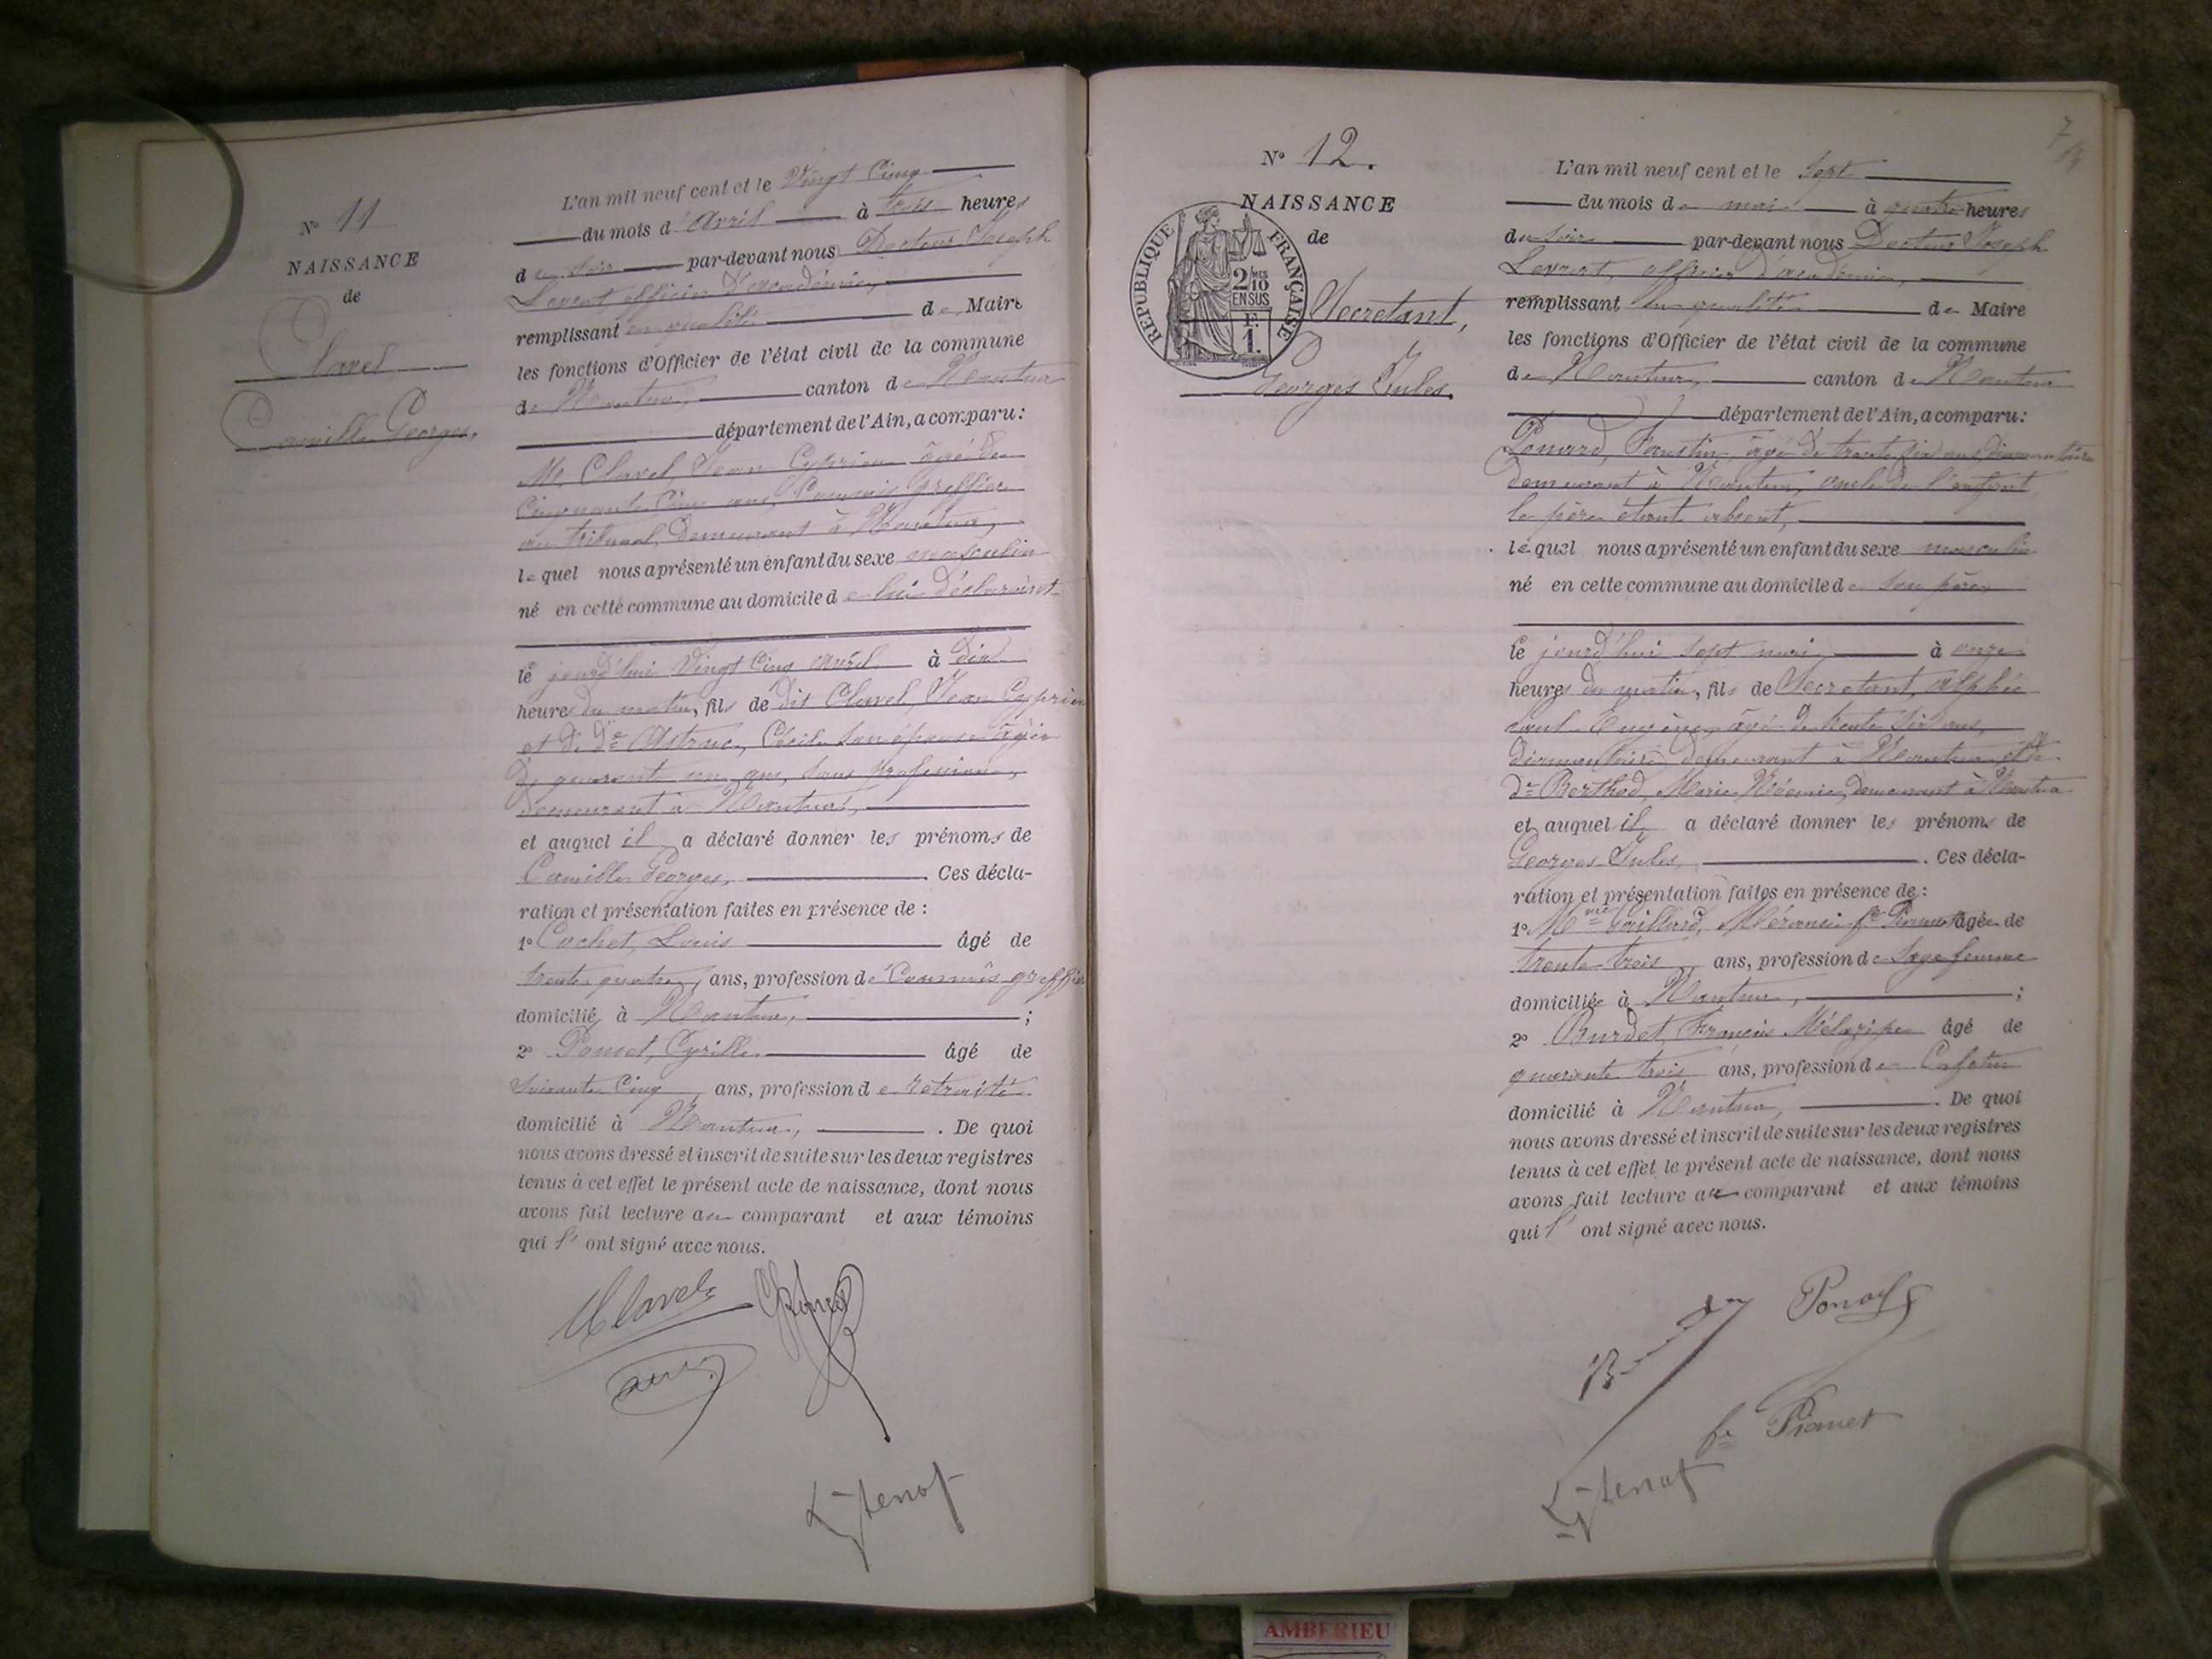 N° 11
NAISSANCE
de
Clavel
Camille Georges.
L'an mil neuf cent et le Vingt Cinq
du mois d'Avril à trois heures
du soir par-devant nous Docteur Joseph
officier d'académie,
remplissant en qualité de Maire
les fonctions d'Officier de l'état civil de la commune
de Nantua, canton de Nantua
département de l'Ain, a comparu:
Mr Clavel, Jean Cyprien âgé de
Cinquante Cinq ans, Commis greffier
au tribunal, demeurant à Nantua,
lequel nous a présenté un enfant du sexe masculin
né en cette commune au domicile de lui déclarant
le jourd'hui Vingt Cinq avril à dix
heures du matin, fils de dit Clavel, Jean Cyprien
et de de Astruc, Cécile son épouse âgée
de quarante un ans, sans profession,
demeurant à Nantua,
et auquel il a déclaré donner les prénoms de
Camille Georges, . Ces décla-
ration et présentation faites en présence de :
1° Cochet, Louis âgé de
trente quatre, ans, profession de Commis greffier
domicilié à Nantua, ;
2° Poncet, Cyrille âgé de
soixante Cinq ans, profession de retraité
domicilié à Nantua, . De quoi
nous avons dressé et inscrit de suite sur les deux registres
tenus à cet effet le présent acte de naissance, dont nous
avons fait lecture au comparant et aux témoins
qui l' ont signé avec nous.
Clavel
7
N° 12.
NAISSANCE
de
RÉPUBLIQUE FRANÇAISE
2 MES
10
EN SUS
F.
1.
Secretant,
Georges Jules.
L'an mil neuf cent et le Sept
du mois de mai à quatre heures
du soir par-devant nous Docteur Joseph
officier d'académie,
remplissant en qualité de Maire
les fonctions d'Officier de l'état civil de la commune
de Nantua, canton de Nantua
département de l'Ain, a comparu:
Ponard, Faustin, âgé de trente six ans, diamantaire
demeurant à Nantua, oncle de l'enfant
le père étant absent,
lequel nous a présenté un enfant du sexe masculin
né en cette commune au domicile de son père
le jourd'hui sept mai, à onze
heures du matin, fils de Secretant, Alphée
Eugène, âgé de trente six ans,
diamantaire demeurant à Nantua, et de
de Berthod, Marie Noémie, demeurant à Nantua
et auquel il a déclaré donner les prénoms de
Georges Jules, . Ces décla-
ration et présentation faites en présence de :
1° Mme Gaillard, fe Pionnet âgée de
trente trois ans, profession de Sage femme
domiciliée à Nantua, ;
2° Burdet, François âgé de
quarante trois ans, profession de
domicilié à Nantua, . De quoi
nous avons dressé et inscrit de suite sur les deux registres
tenus à cet effet le présent acte de naissance, dont nous
avons fait lecture au comparant et aux témoins
qui l' ont signé avec nous.
Ponard
fe Pionet
AMBERIEU